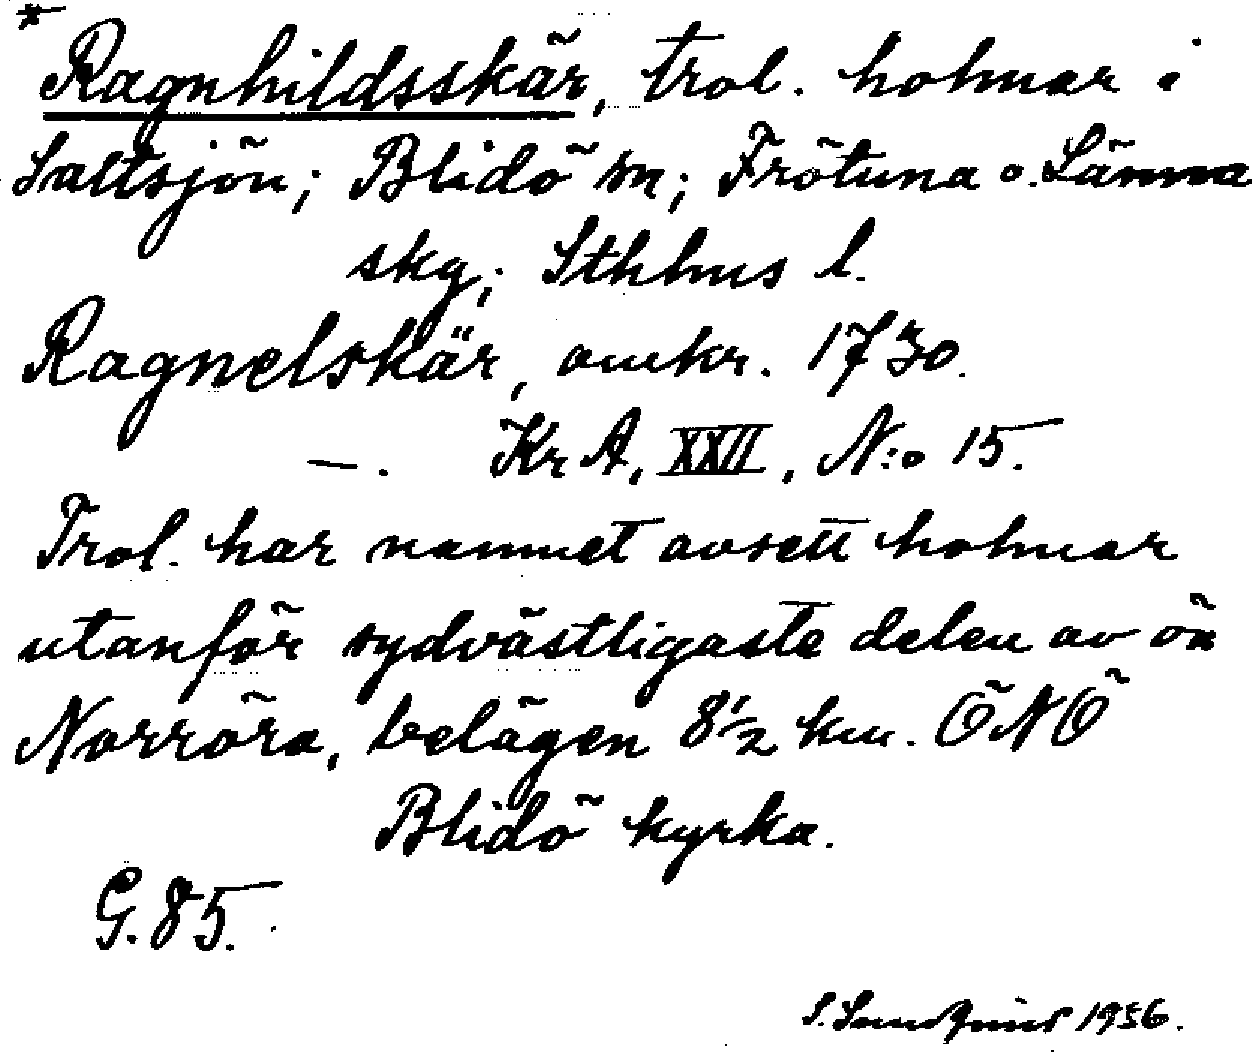 * Ragnhildsskär, trol. holmar i
Saltsjön; Blidö sn; Frötuna o. Länna
skg; Sthlms l.
Ragnelskär, omkr. 1730.
—. KrA, XXII, N:o 15.
Trol. har namnet avsett holmar
utanför sydvästligaste delen av ön
Norröra, belägen 8½ km. ÖNÖ
Blidö kyrka.
G. 85.
S. Sundquist 1936.